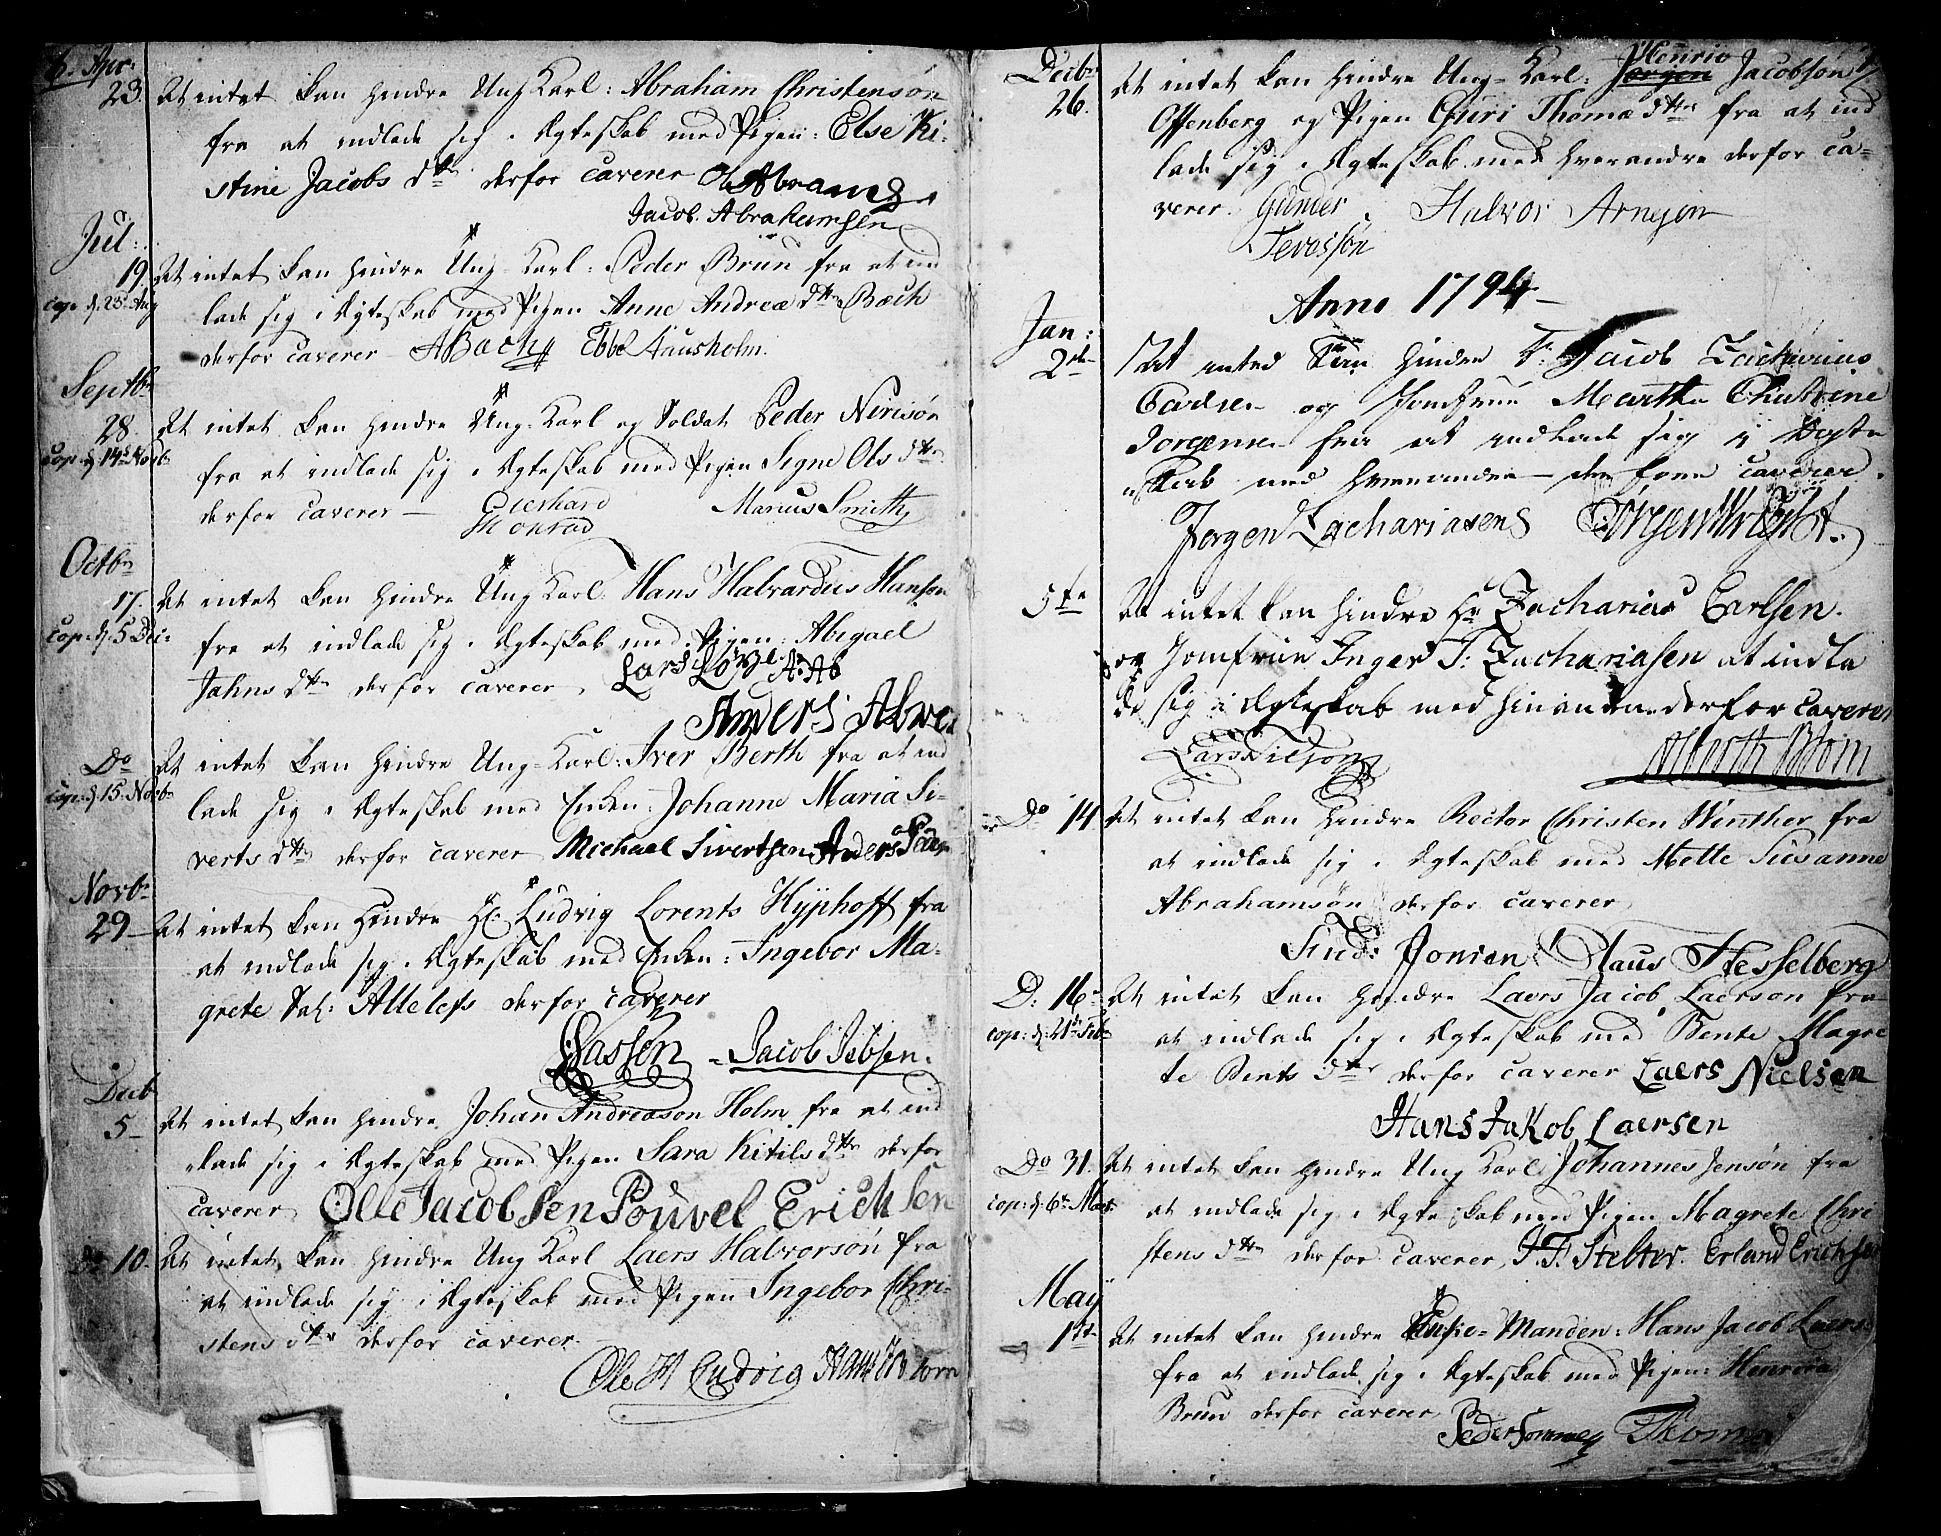 6. Apr:
23. At intet kan hindre Ung Karl: Abraham Christensøn
fra at indlade sig i Ægteskab med Pigen: Else Ki-
stine Jacobs dtr derfor caverer Ole Abrams
Jacob Abrahamsen
Jul:
19. At intet kan hindre Ung-Karl: Peder Brun fra at ind
cop: d. 23 Aug
lade sig i Ægteskab med Pigen Anne Andreæ dtr Bæch
derfor caverer ABach Ebbe
Septbr
28 At intet kan hindre Ung-Karl og Soldat Peder Nirisøn
cop: d 14de Novb
fra at indlade sig i Ægteskab med Pigen Signe Ols dtr
derfor caverer — Gierhard Marius Smith
Konrad
Octbr
17. At intet kan hindre Ung Karl: Hans Halvardus Hansøn
cop: d. 5 Dec:
fra at indlade sig i Ægteskab med Pigen: Abigael
Jahns dtr derfor caverer Lars
Anders
Do At intet kan hindre Ung-Karl: Iver Berth fra at ind
cop: d. 15. Novb
lade sig i Ægteskab med Enken: Johanne Maria Si-
verts dtr derfor caverer Michael Sivertsen Anders
Novbr
29 At intet kan hindre Hr. Ludvig Lorents Hyphoff fra
at indlade sig i Ægteskab med Enken: Ingebor Ma-
grete Sal: Allelefs derfor caverer
Sassen Jacob Jebsen.
Decb
5 At intet kan hindre Johan Andreasøn Holm fra at ind
lade sig i Ægteskab med Pigen Sara Kitils dtr derfor
caverer Olle Jacobsen Pouvel Erichsen
Do 10. At intet kan hindre Ung Karl Laers Halvorsøn fra
at indlade sig i Ægteskab med Pigen Ingebor Chri-
stens dtr derfor caverer.
Ole H Ludvig Hans
Decbr
Henric
26. At intet kan hindre Ung-Karl: Jørgen Jacobsøn
Offenberg og Pigen Guri Thomæ dtr fra at ind
lade sig i Ægteskab med hverandre derfor ca-
verer. Gunder Halvor Arnesen
Tevessøn
Anno 1794
Jan:
2de At inted kan hindre Jacob Zacharius
Carlsen og Jomfrue Marthe Christine
Jorgensen fra at indlade sig i Ægte
skab med hverandre — derfore caverer
Jørgen Zachariasens Jørgen Wright.
5te At intet kan hindre Hr Zacharias Carlsen.
og Jomfrue Inger J: Zachariasen at indla
de sig i Ægteskab med hinanden derfor caverer
Lars Nilson Alberth Blom
Do 14 At intet kan hindre Rector Christen Winther fra
at indlade sig i Ægteskab med Mette Susanne
Abrahamsøn derfor caverer
Jonsen Claus Hesselberg
D: 16 At intet kan hindre Laers Jacob Laersøn fra
cop: d. 21de Feb
at indlade sig i Ægteskab med Bente Magre
te Bents dtr derfor caverer Laers Nielsen
Hans Jakob Laersen
Do 31. At intet kan hindre Ung Karl Johannes Jensøn fra
cop: d. 6te Mars
at indlade sig i Ægteskab med Pigen Magrete Chri
stens dtr derfor caverer, J. F. Stelter. Erland Erichsen
May
1ste At intet kan hindre Enke-Manden: Hans Jacob Laers.
fra at indlade sig i Ægteskab med Pigen: Henrica
Bruun derfor caverer
Peder